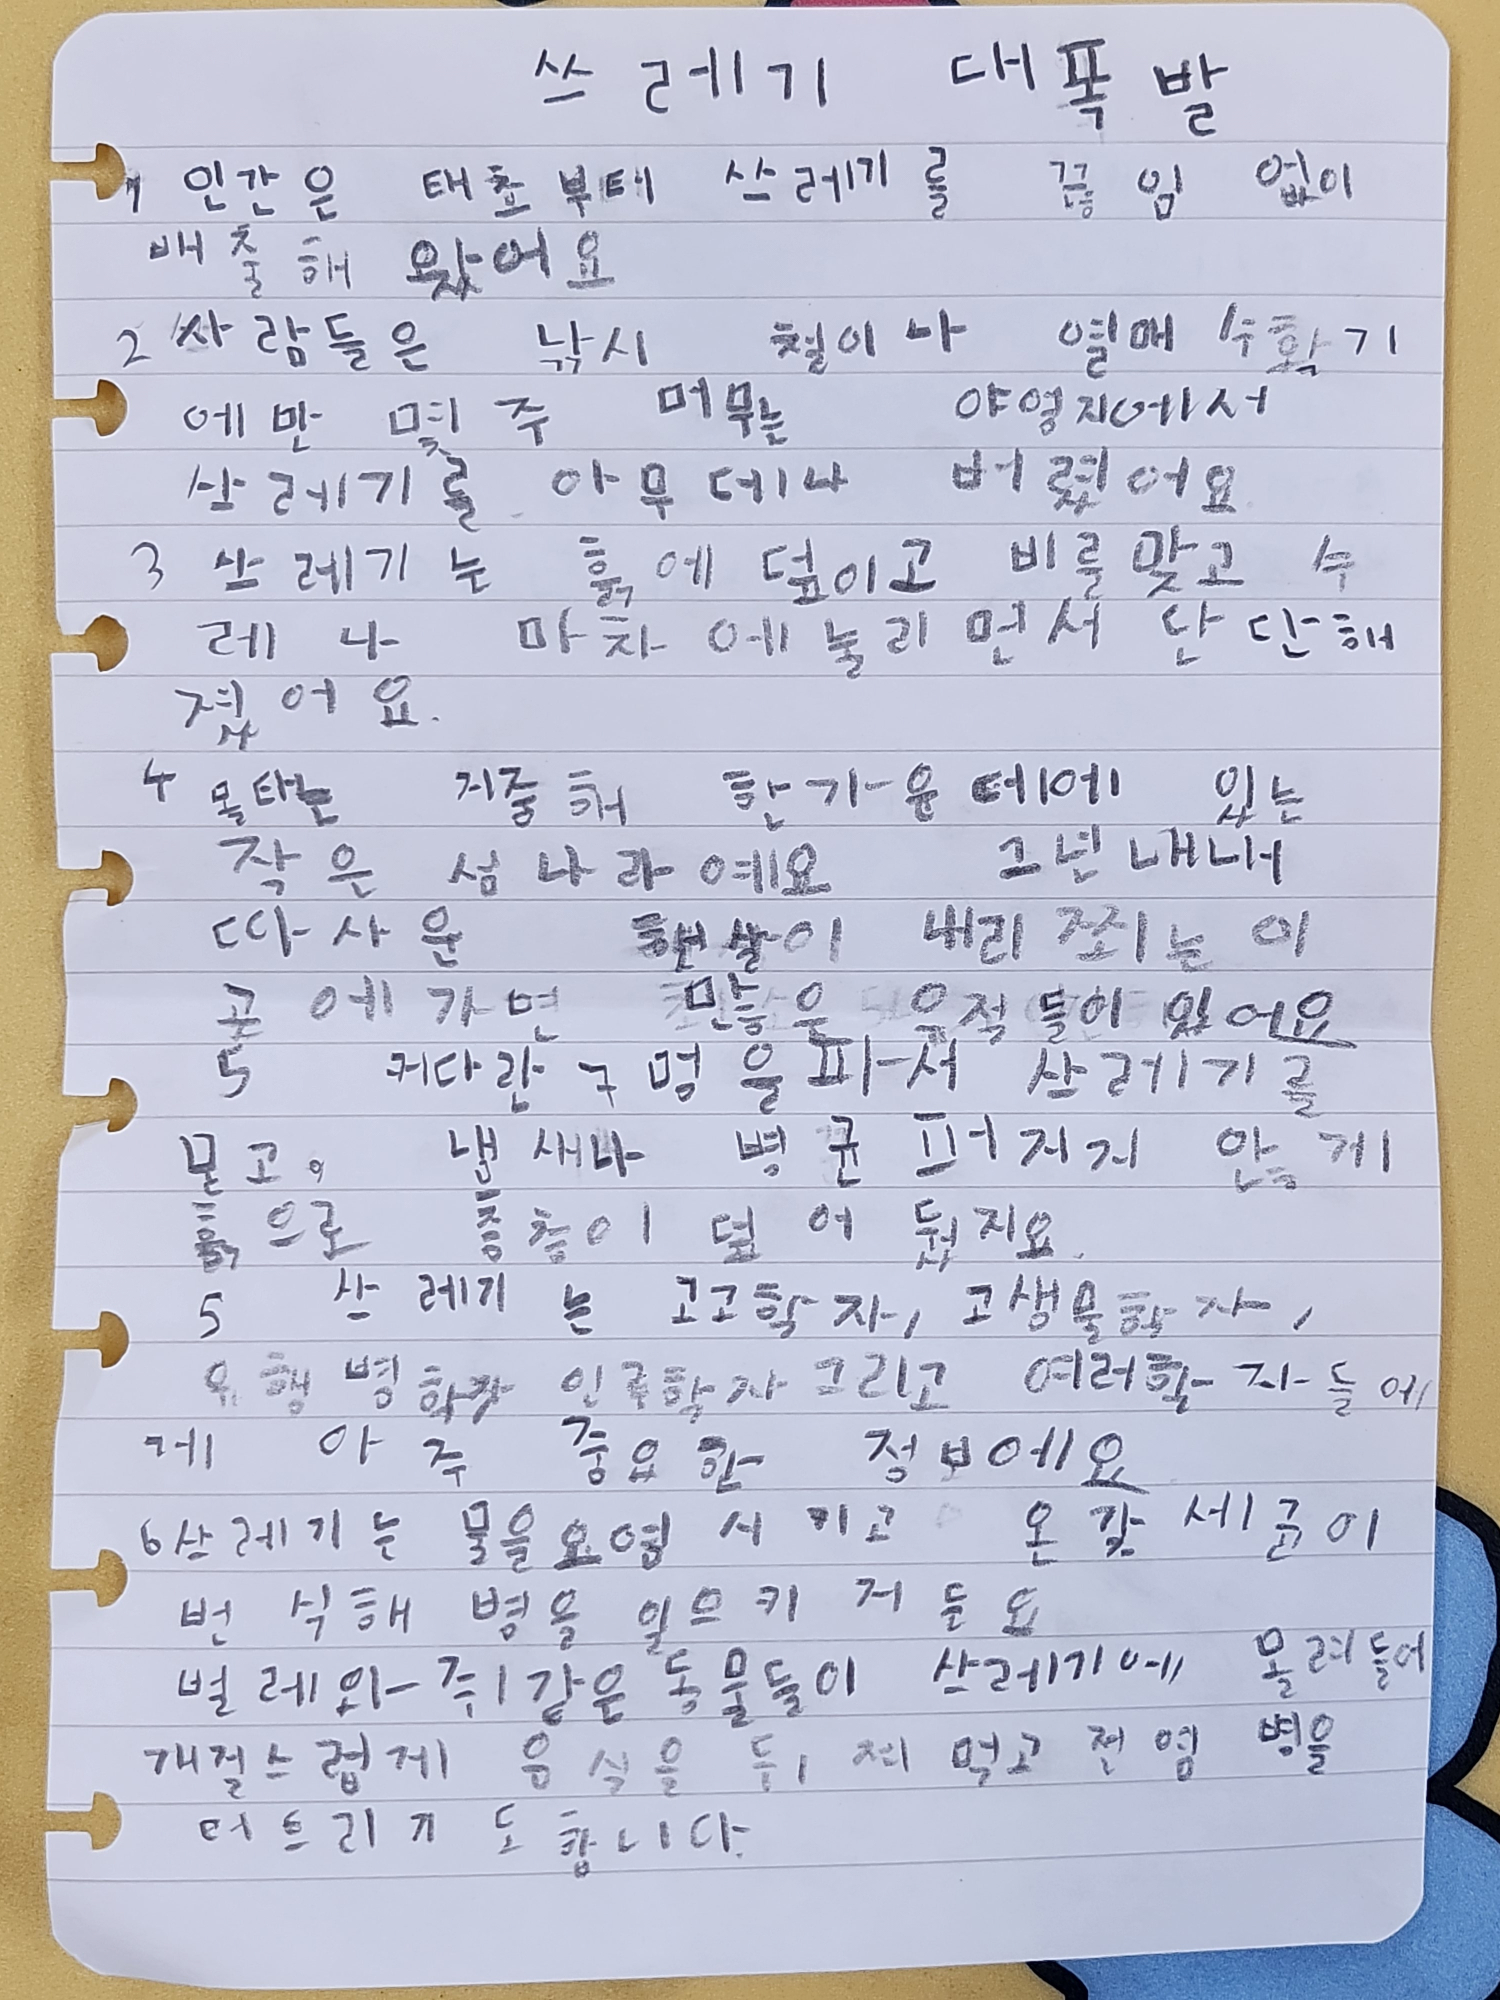 쓰레기 대폭발
1 인간은 태초부터 쓰레기를 끊임 없이
배출해 왔어요
2 사람들은 낚시 철이나 열매 수확기
에만 몇주 머무는 야영지에서
쓰레기를 아무데나 버렸어요
3 쓰레기는 흙에 덮이고 비를 맞고 수
레나 마차에 눌리면서 단단해
졌어요.
4 몰타는 지중해 한가운데에 있는
작은 섬나라예요 그년내내
따사운 햇살이 내리쬐는 이
곳에가면 만흔 유적들이 있어요
5 커다란 구멍을 파서 쓰레기를
묻고, 냄새나 병균 퍼지지 안흥게
흙으로 층층이 덮어 뒀지요.
5 쓰레기는 고고학자, 고생물학자,
유행병학자 인류학자 그리고 여러학자들에
게 아주 중요한 정보에요
6 쓰레기는 물을 오염 시키고 온갖 세균이
번식해 병을 일으키거든요
벌레와 쥐같은 동물들이 쓰레기에 몰려들어
개걸스럽게 음식을 뒤져먹고 전염병을
터트리기도 합니다.